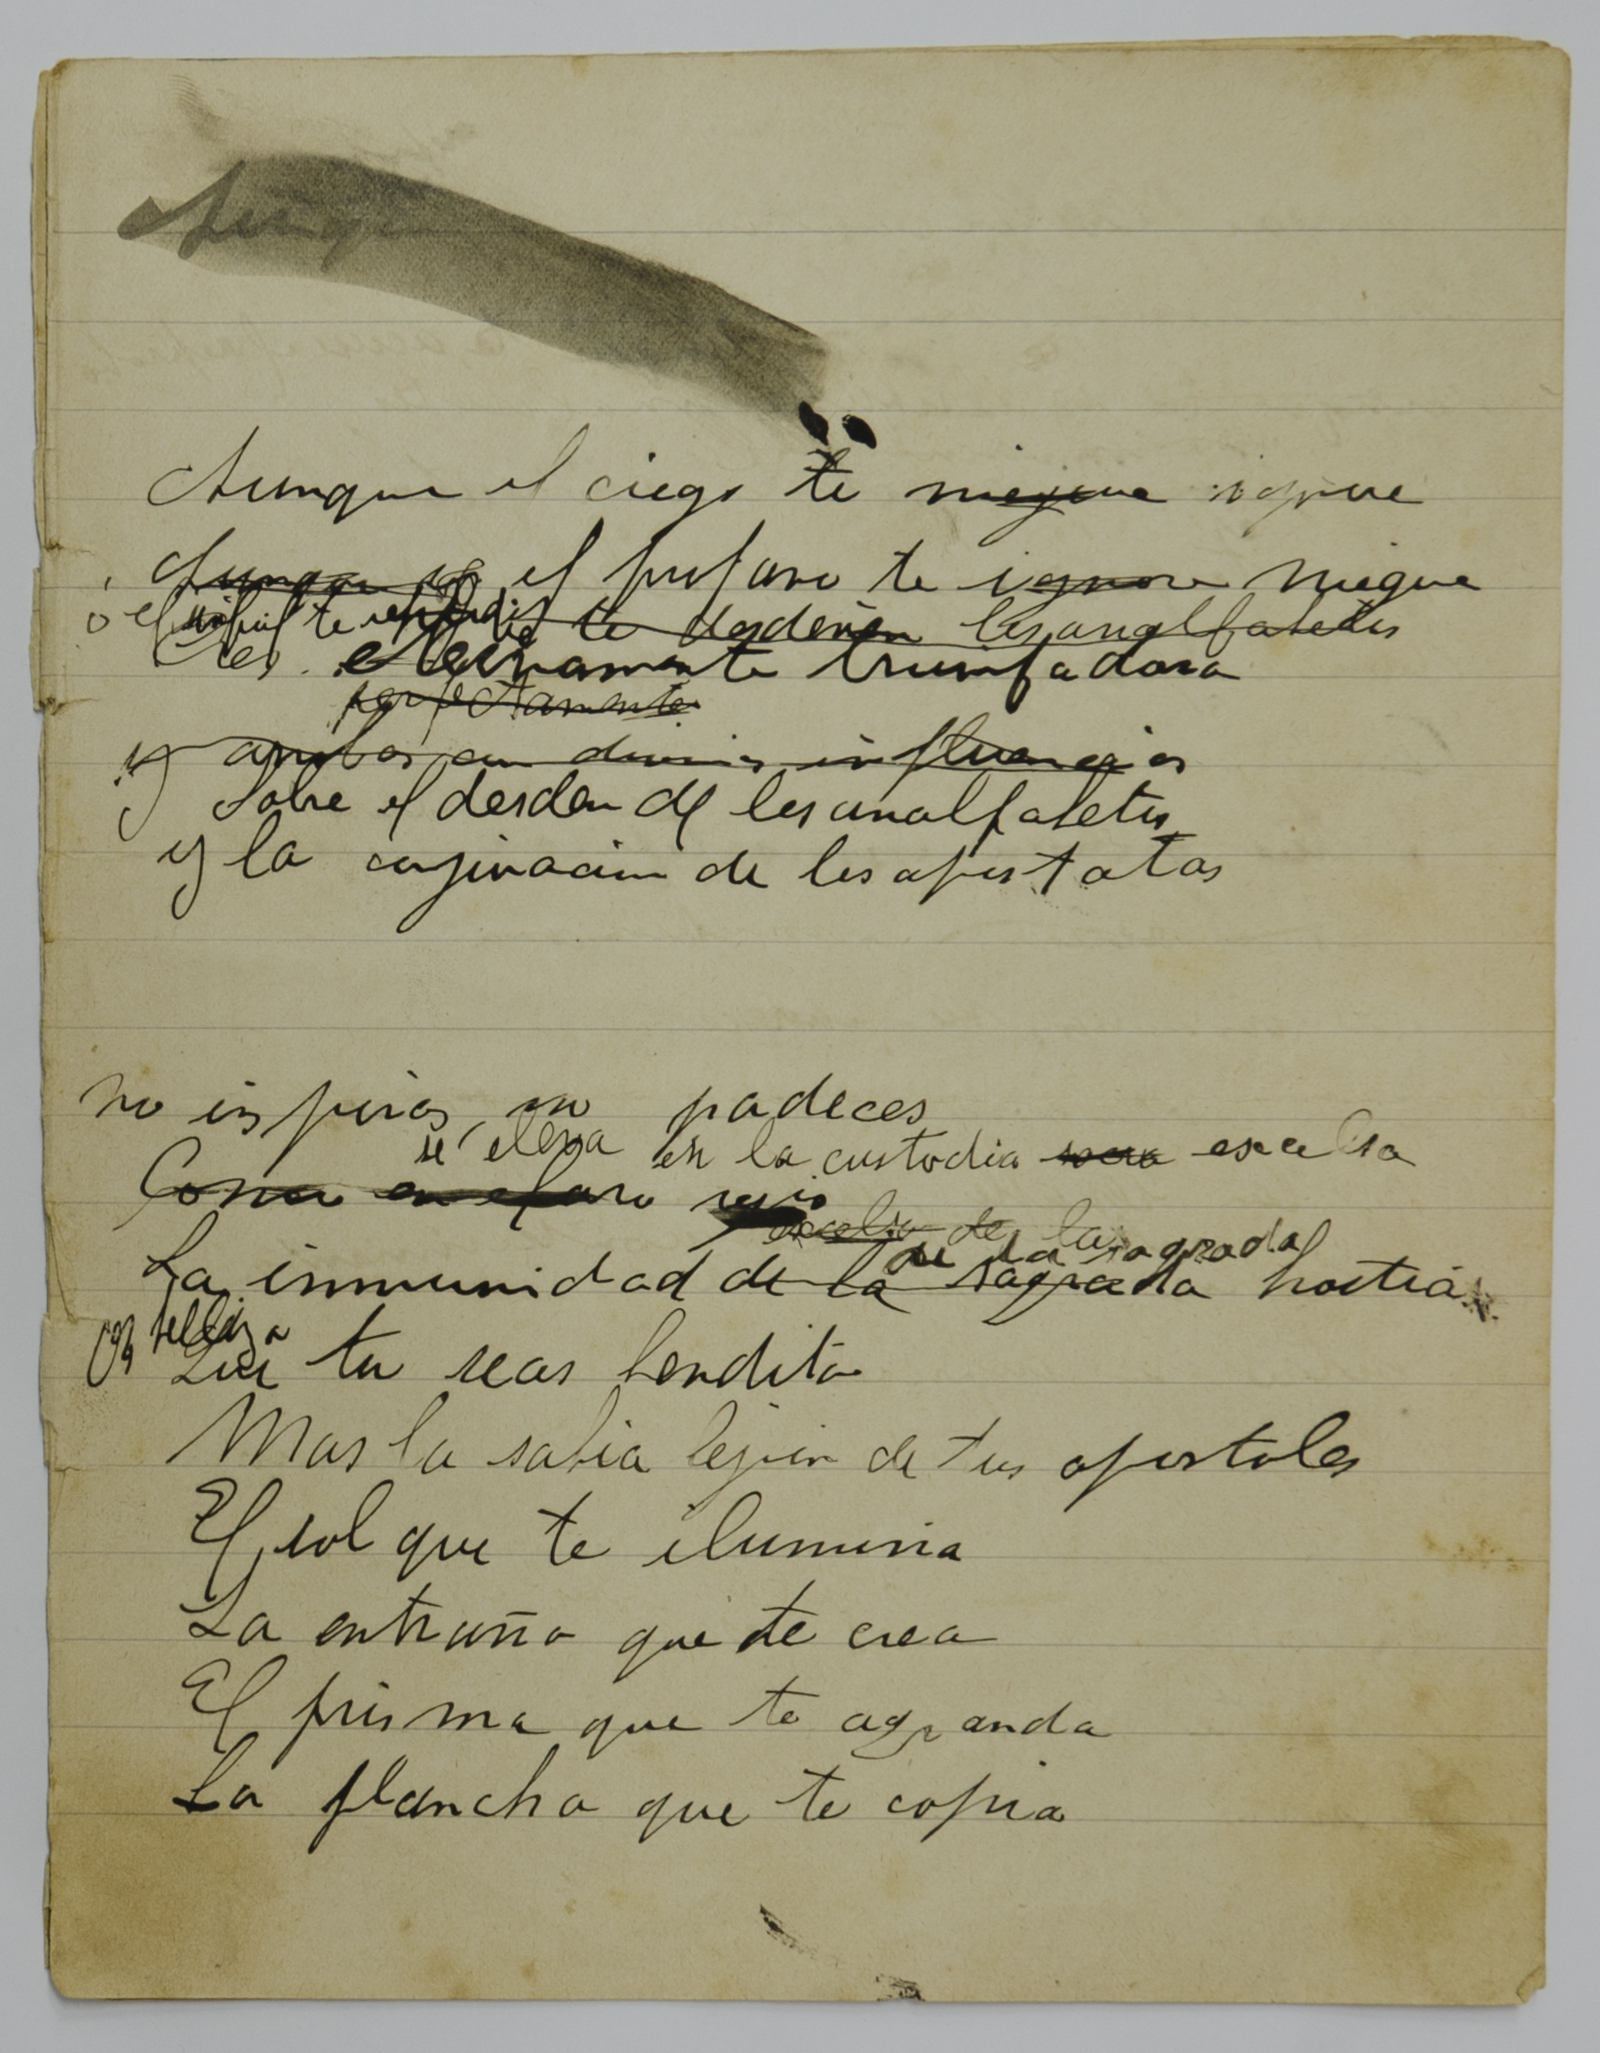 Aunque
Aunque el ciego te niegue ignore
Aunque el profano te ignore niegue
ó el te
te desdeñen los analfabetos
Eres eternamente triunfadora
perfectamente
y ambos en divinas influencias
y sobre el desden de los analfabetos
y la conjuracion de los apostatas
no inspiras, no padeces
se eleva en la custodia excelsa
Como en el aro regio
excelsa de la
de la sagrada
La inmunidad de la sagrada hostia
Oh belleza
Que tu seas bendita
Mas la sabia legion de tus apostoles
El sol que te ilumina
La entraña que te crea
El prisma que te agranda
La plancha que te copia